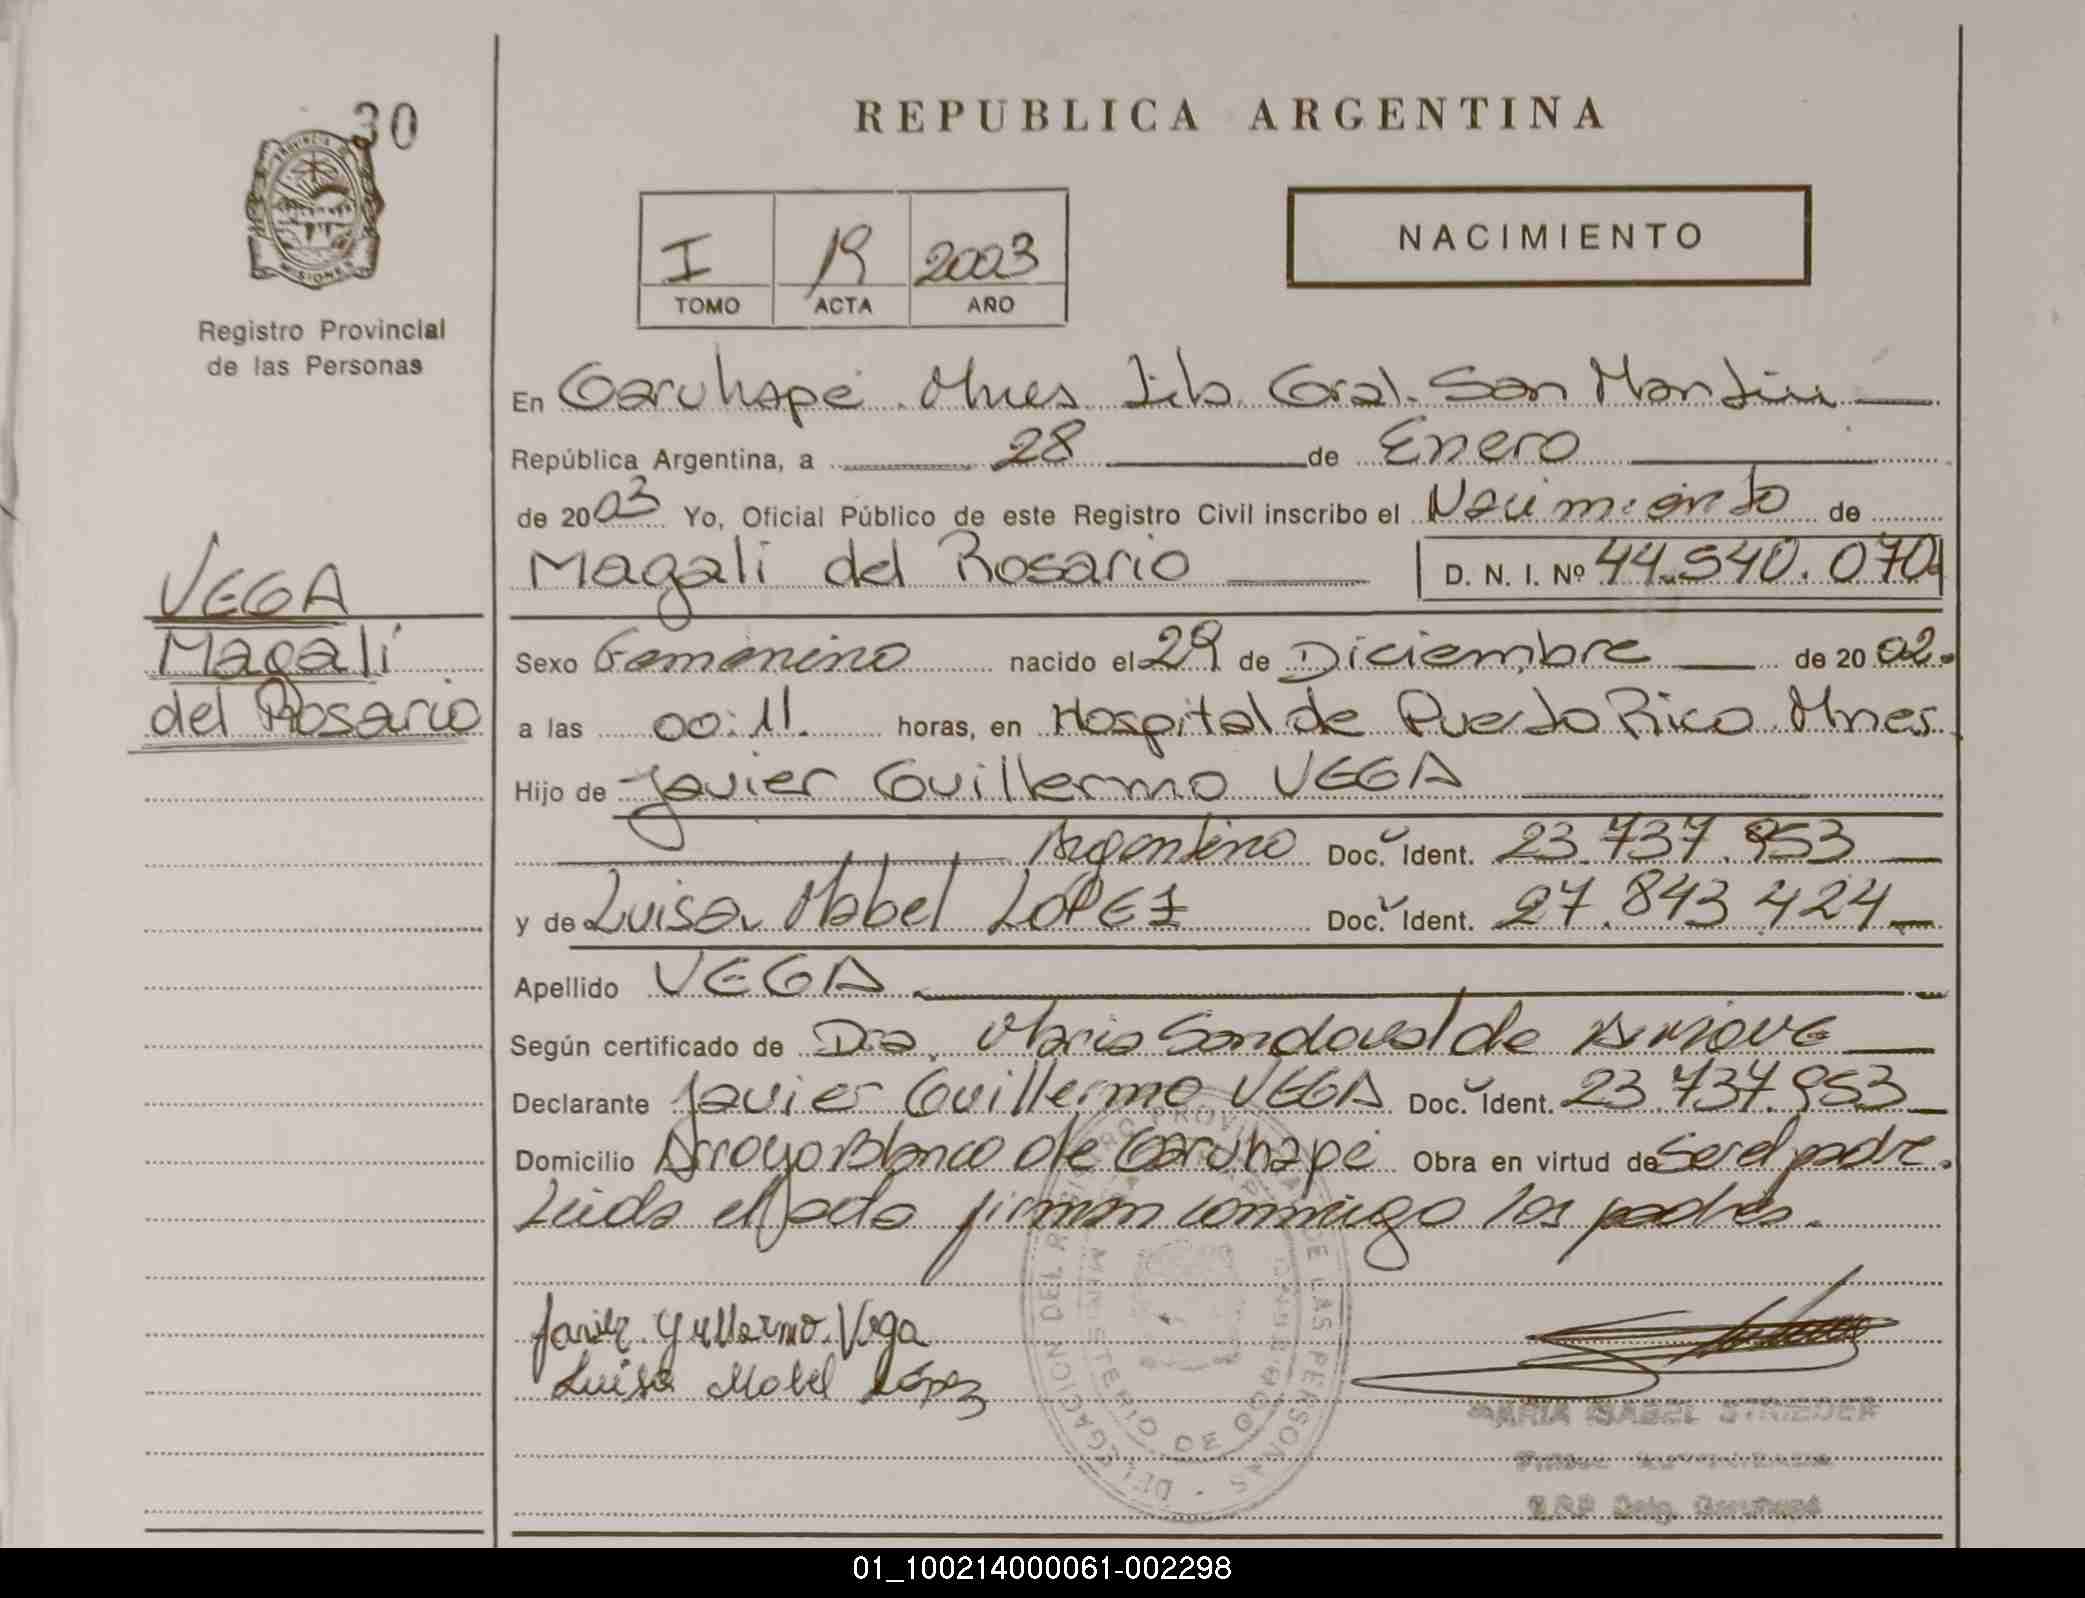 30
REPUBLICA ARGENTINA
PROVINCIA DE MISIONES
Registro Provincial
de las Personas
I 2003
TOMO ACTA AÑO
NACIMIENTO
En Garuhapé Mnes Lib. Gral. San Martín
República Argentina, a 28 de Enero
de 2003 Yo, Oficial Público de este Registro Civil inscribo el Nacimiento de
Magali del Rosario D. N. I. Nº 44.540.070
VEGA
Magali
del Rosario
Sexo Femenino nacido el 29 de Diciembre de 2002.
a las 00:11. horas, en Hospital de Puerto Rico Mnes.
Hijo de Javier Guillermo VEGA
Argentino Doc. Ident. 23.737.953
y de Luisa Mabel LOPEZ Doc. Ident. 27.843.424
Apellido VEGA
Según certificado de Dra. Maria Sandoval de
Declarante Javier Guillermo VEGA Doc. Ident. 23.737.953
Domicilio Arroyo Blanco de Garuhapé Obra en virtud de Ser el padre.
Leida el acta firman conmigo los padres.
Javier Guillermo Vega
Luisa Mabel López
DELEGACION DEL REGISTRO PROVINCIAL DE LAS PERSONAS
MINISTERIO DE GOBIERNO
MARIA ISABEL STRIEDER
R.P.P Deleg. Garuhapé
01_100214000061-002298